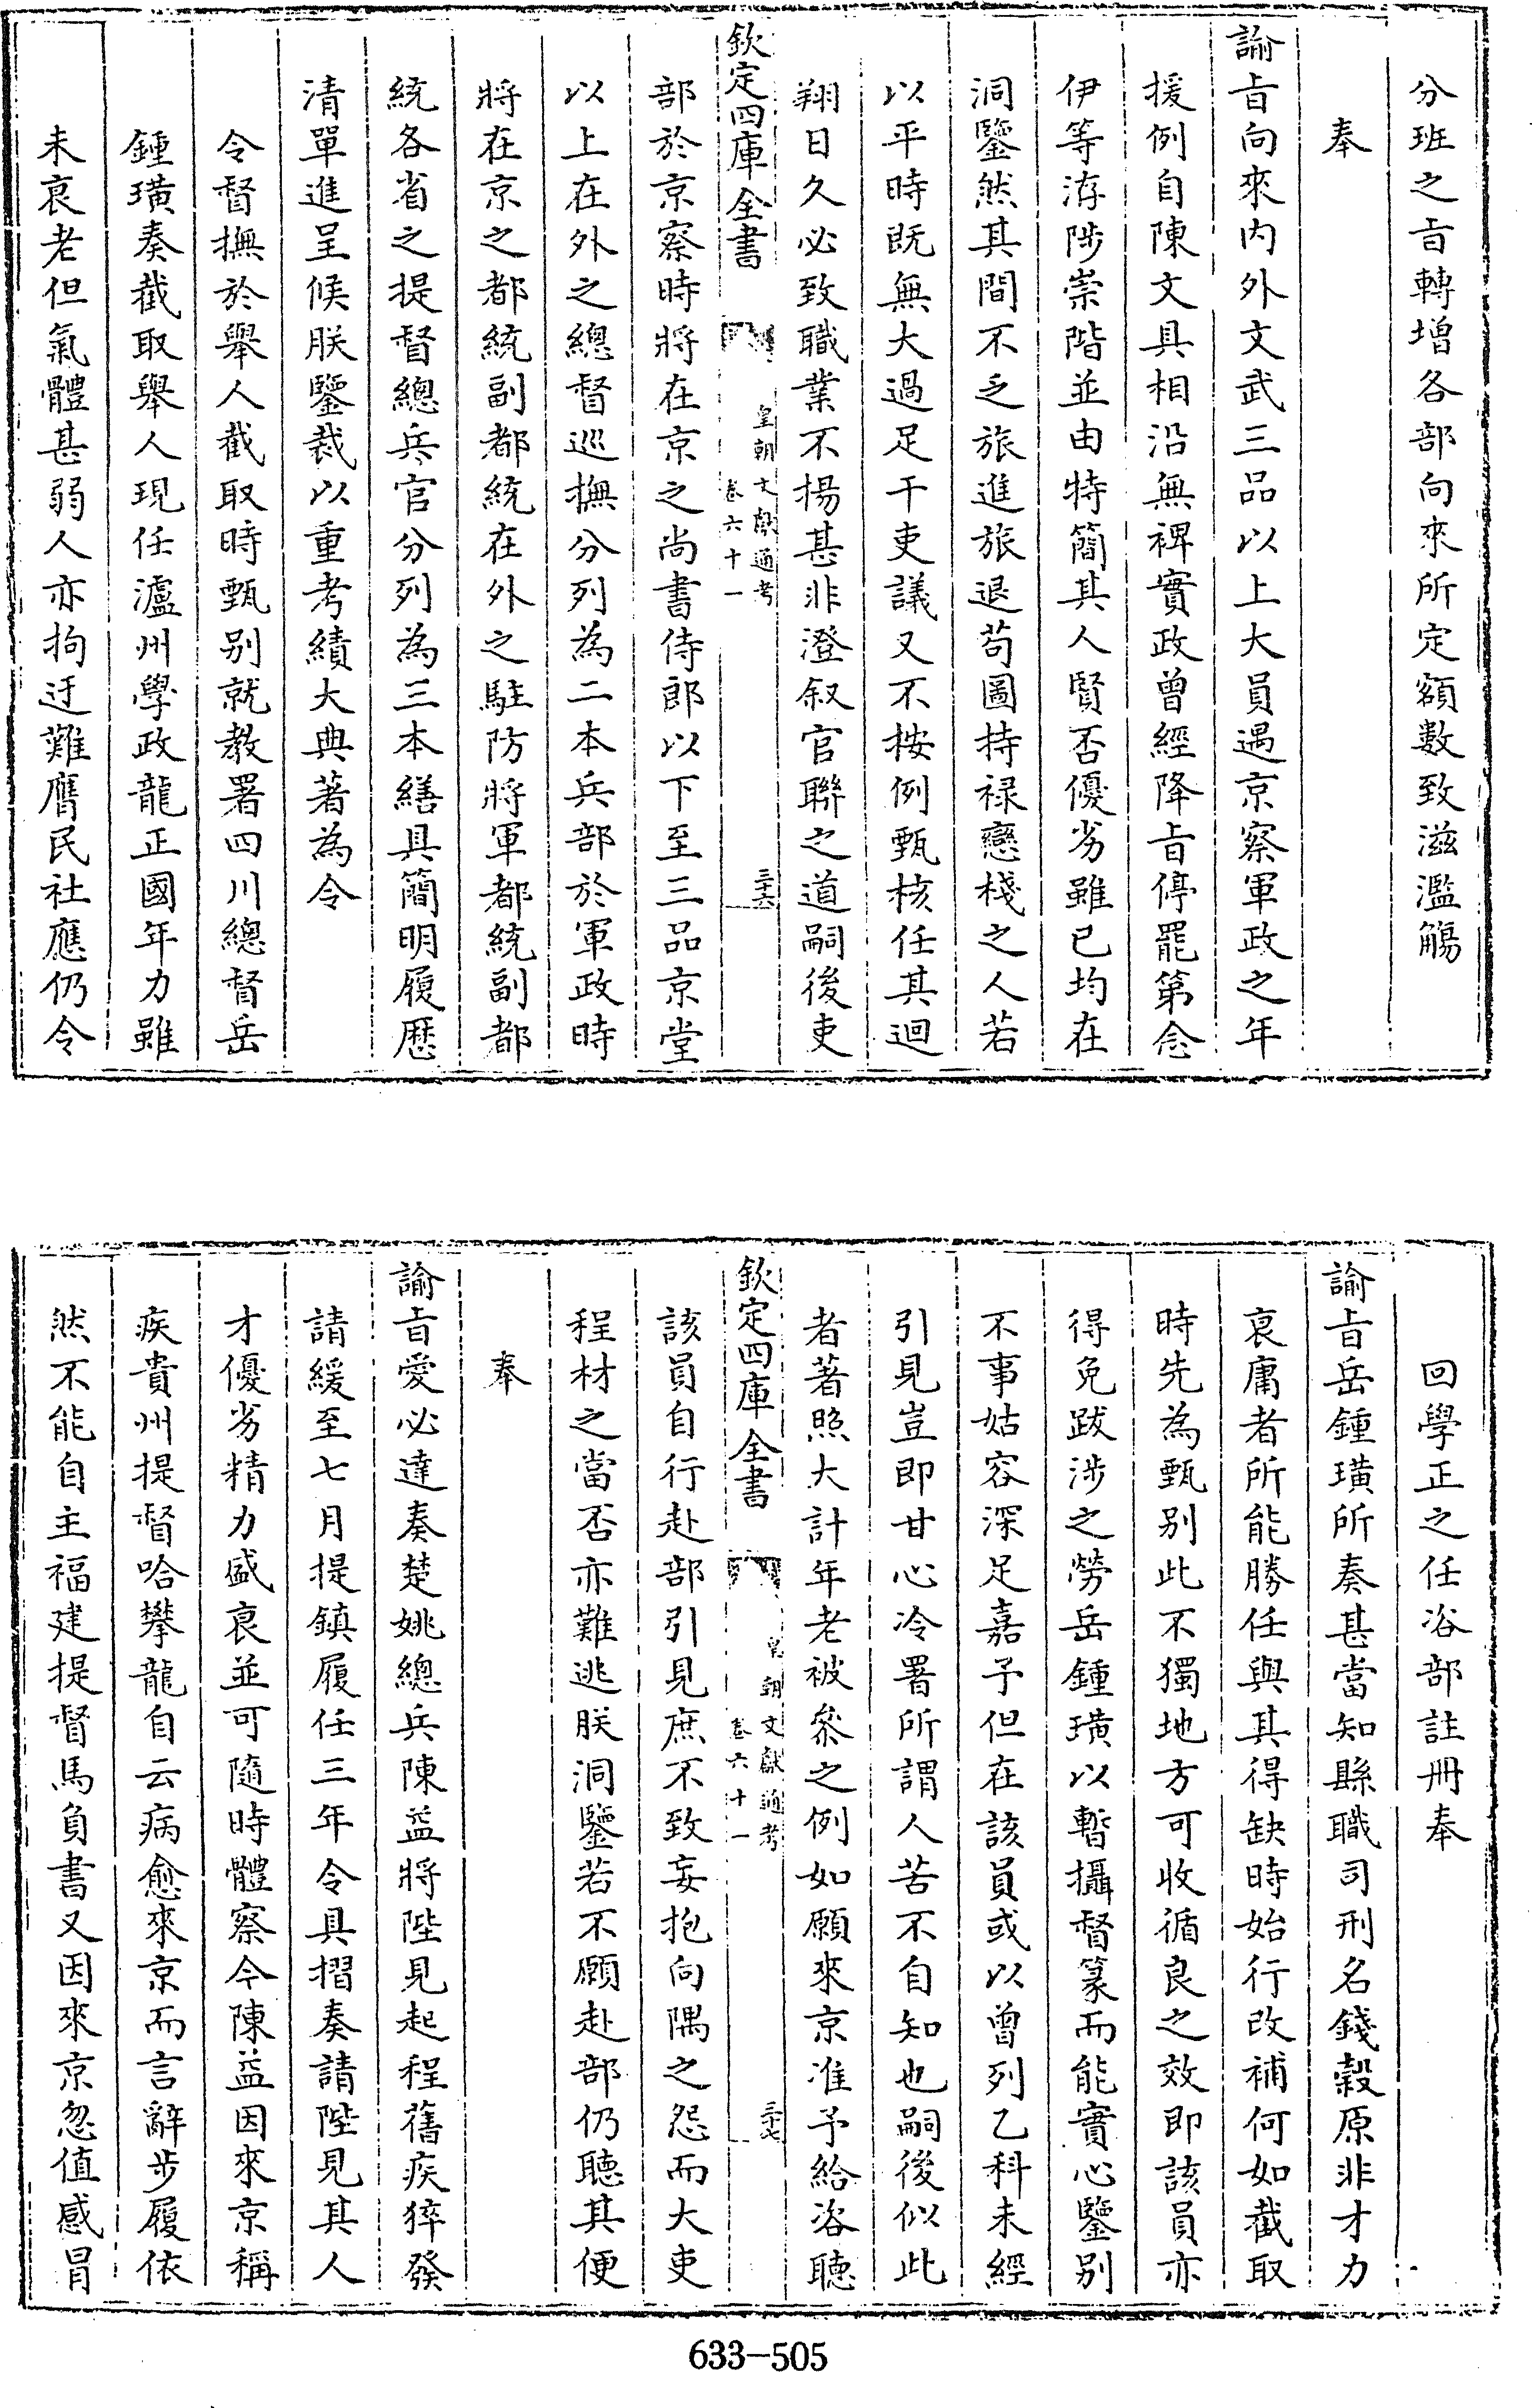 分班之旨轉增各部向來所定額數致滋濫觴
奉
諭旨向來内外文武三品以上大員遇京察軍政之年
援例自陳文具相沿無裨實政曾經降旨停罷第念
伊等洊陟崇階並由特簡其人賢否優劣雖已均在
洞鑒然其間不乏旅進旅退苟圖持禄戀棧之人若
以平時既無大過足干吏議又不按例甄核任其迴
翔日久必致職業不揚甚非澄叙官聯之道嗣後吏
欽定四庫全書
皇朝文獻通考
卷六十一
三十六
部於京察時將在京之尚書侍郎以下至三品京堂
以上在外之總督巡撫分列為二本兵部於軍政時
將在京之都統副都統在外之駐防將軍都統副都
統各省之提督總兵官分列為三本繕具簡明履歷
清單進呈候朕鑒裁以重考績大典著為令
令督撫於舉人截取時甄别就教署四川總督岳
鍾璜奏截取舉人現任瀘州學政龍正國年力雖
未衰老但氣體甚弱人亦拘迂難膺民社應仍令
回學正之任咨部註冊奉
諭旨岳鍾璜所奏甚當知縣職司刑名錢穀原非才力
衰庸者所能勝任與其得缺時始行改補何如截取
時先為甄别此不獨地方可收循良之效即該員亦
得免跋涉之勞岳鍾璜以暫攝督篆而能實心鑒别
不事姑容深足嘉予但在該員或以曾列乙科未經
引見豈即甘心冷署所謂人苦不自知也嗣後似此
者著照大計年老被叅之例如願來京准予給咨聽
欽定四庫全書
皇朝文獻通考
卷六十一
三十七
該員自行赴部引見庶不致妄抱向隅之怨而大吏
程材之當否亦難逃朕洞鑒若不願赴部仍聽其便
奉
諭旨愛必達奏楚姚總兵陳益將陛見起程舊疾猝發
請緩至七月提鎮履任三年令具摺奏請陛見其人
才優劣精力盛衰並可隨時體察今陳益因來京稱
疾貴州提督哈攀龍自云病愈來京而言辭步履依
然不能自主福建提督馬負書又因來京忽值感冒
633-505